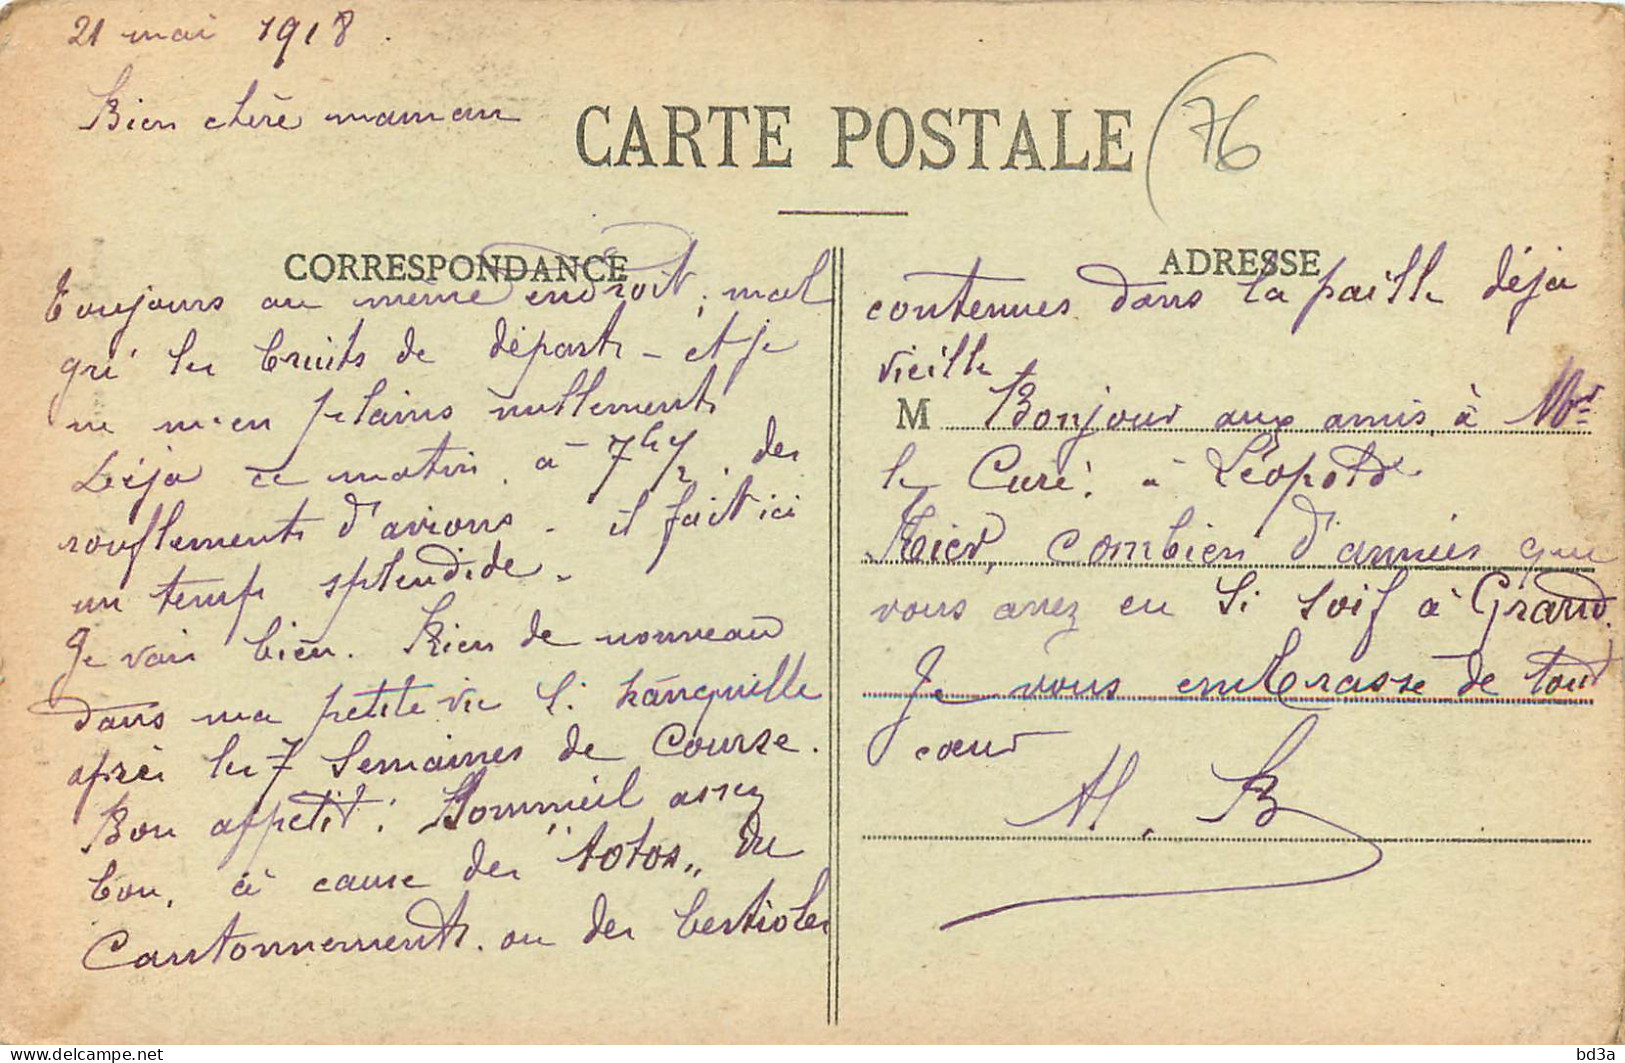 21 mai 1918.
Bien chère maman
CARTE POSTALE
76
CORRESPONDANCE
Toujours au même endroit, mal
gré les bruits de départ - et je
ne m'en plains nullement
Déja ce matin à 7h½ des
ronflements d'avions - il fait ici
un temps splendide -
Je vais bien. Rien de nouveau
dans ma petite vie si tranquille
après les 7 semaines de course.
Bon appetit; Sommeil assez
bon, à cause des "totos" du
Cantonnement. ou des bestioles
ADRESSE
contenues dans la paille déja
vieille
M Bonjour aux amis, à Mr
le Curé. à Léopold.
Hier, combien d'années que
vous avez eu si soif à Grand.
Je vous embrasse de tout
cœur
H. B
www.delcampe.net
bd3a